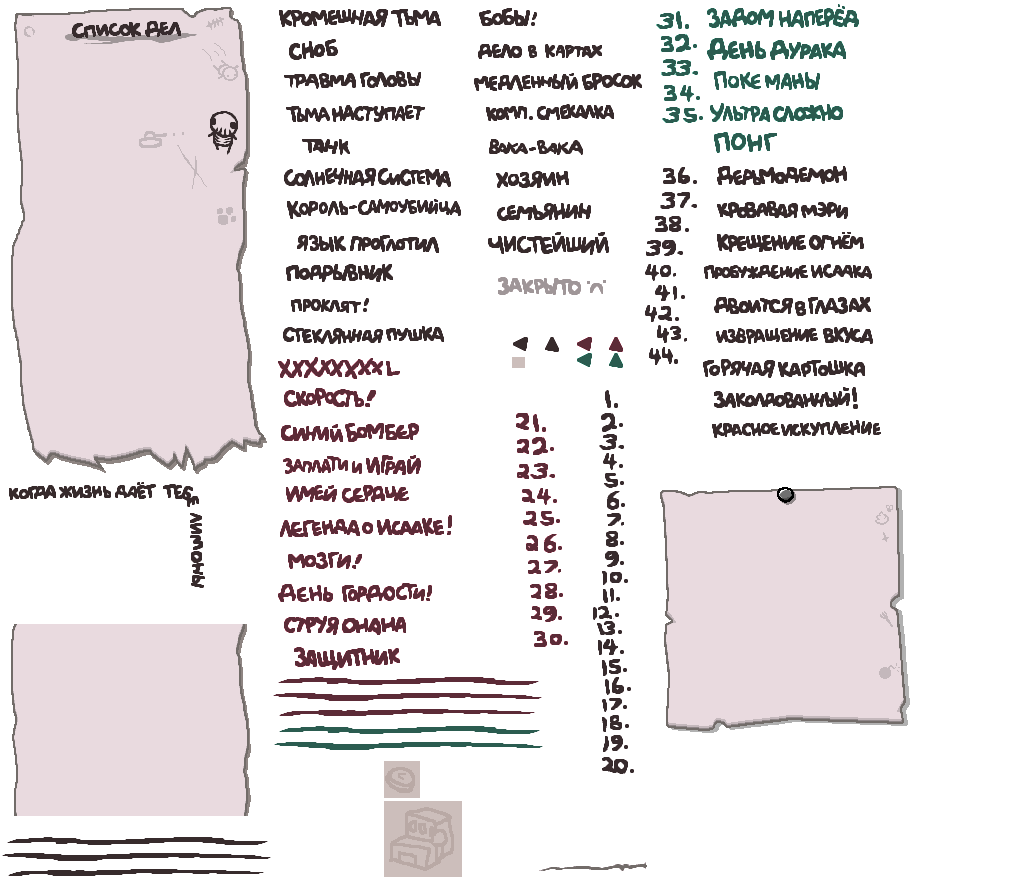 СПИСОК ДЕЛ
КРОМЕШНАЯ ТЬМА
СНОБ
ТРАВМА ГОЛОВЫ
ТЬМА НАСТУПАЕТ
ТАНК
СОЛНЕЧНАЯ СИСТЕМА
КОРОЛЬ-САМОУБИЙЦА
ЯЗЫК ПРОГЛОТИЛ
ПОДРЫВНИК
ПРОКЛЯТ!
СТЕКЛЯННАЯ ПУШКА
XXXXXXXXL
СКОРОСТЬ!
СИНИЙ БОМБЕР
ЗАПЛАТИ И ИГРАЙ
ИМЕЙ СЕРДЦЕ
ЛЕГЕНДА О ИСААКЕ!
МОЗГИ!
ДЕНЬ ГОРДОСТИ!
СТРУЯ ОНАНА
ЗАЩИТНИК
КОГДА ЖИЗНЬ ДАЁТ ТЕБЕ ЛИМОНЫ
БОБЫ!
ДЕЛО В КАРТАХ
МЕДЛЕННЫЙ БРОСОК
КОМП. СМЕКАЛКА
ВАКА-ВАКА
ХОЗЯИН
СЕМЬЯНИН
ЧИСТЕЙШИЙ
ЗАКРЫТО ^^
21.
22.
23.
24.
25.
26.
27.
28.
29.
30.
1.
2.
3.
4.
5.
6.
7.
8.
9.
10.
11.
12.
13.
14.
15.
16.
17.
18.
19.
20.
31.
32.
33.
34.
35.
36.
37.
38.
39.
40.
41.
42.
43.
44.
ЗАДОМ НАПЕРЁД
ДЕНЬ ДУРАКА
ПОКЕМАНЫ
УЛЬТРА СЛОЖНО
ПОНГ
ДЕРЬМОДЕМОН
КРОВАВАЯ МЭРИ
КРЕЩЕНИЕ ОГНЁМ
ПРОБУЖДЕНИЕ ИСААКА
ДВОИТСЯ В ГЛАЗАХ
ИЗВРАЩЕНИЕ ВКУСА
ГОРЯЧАЯ КАРТОШКА
ЗАКОЛДОВАННЫЙ!
КРАСНОЕ ИСКУПЛЕНИЕ